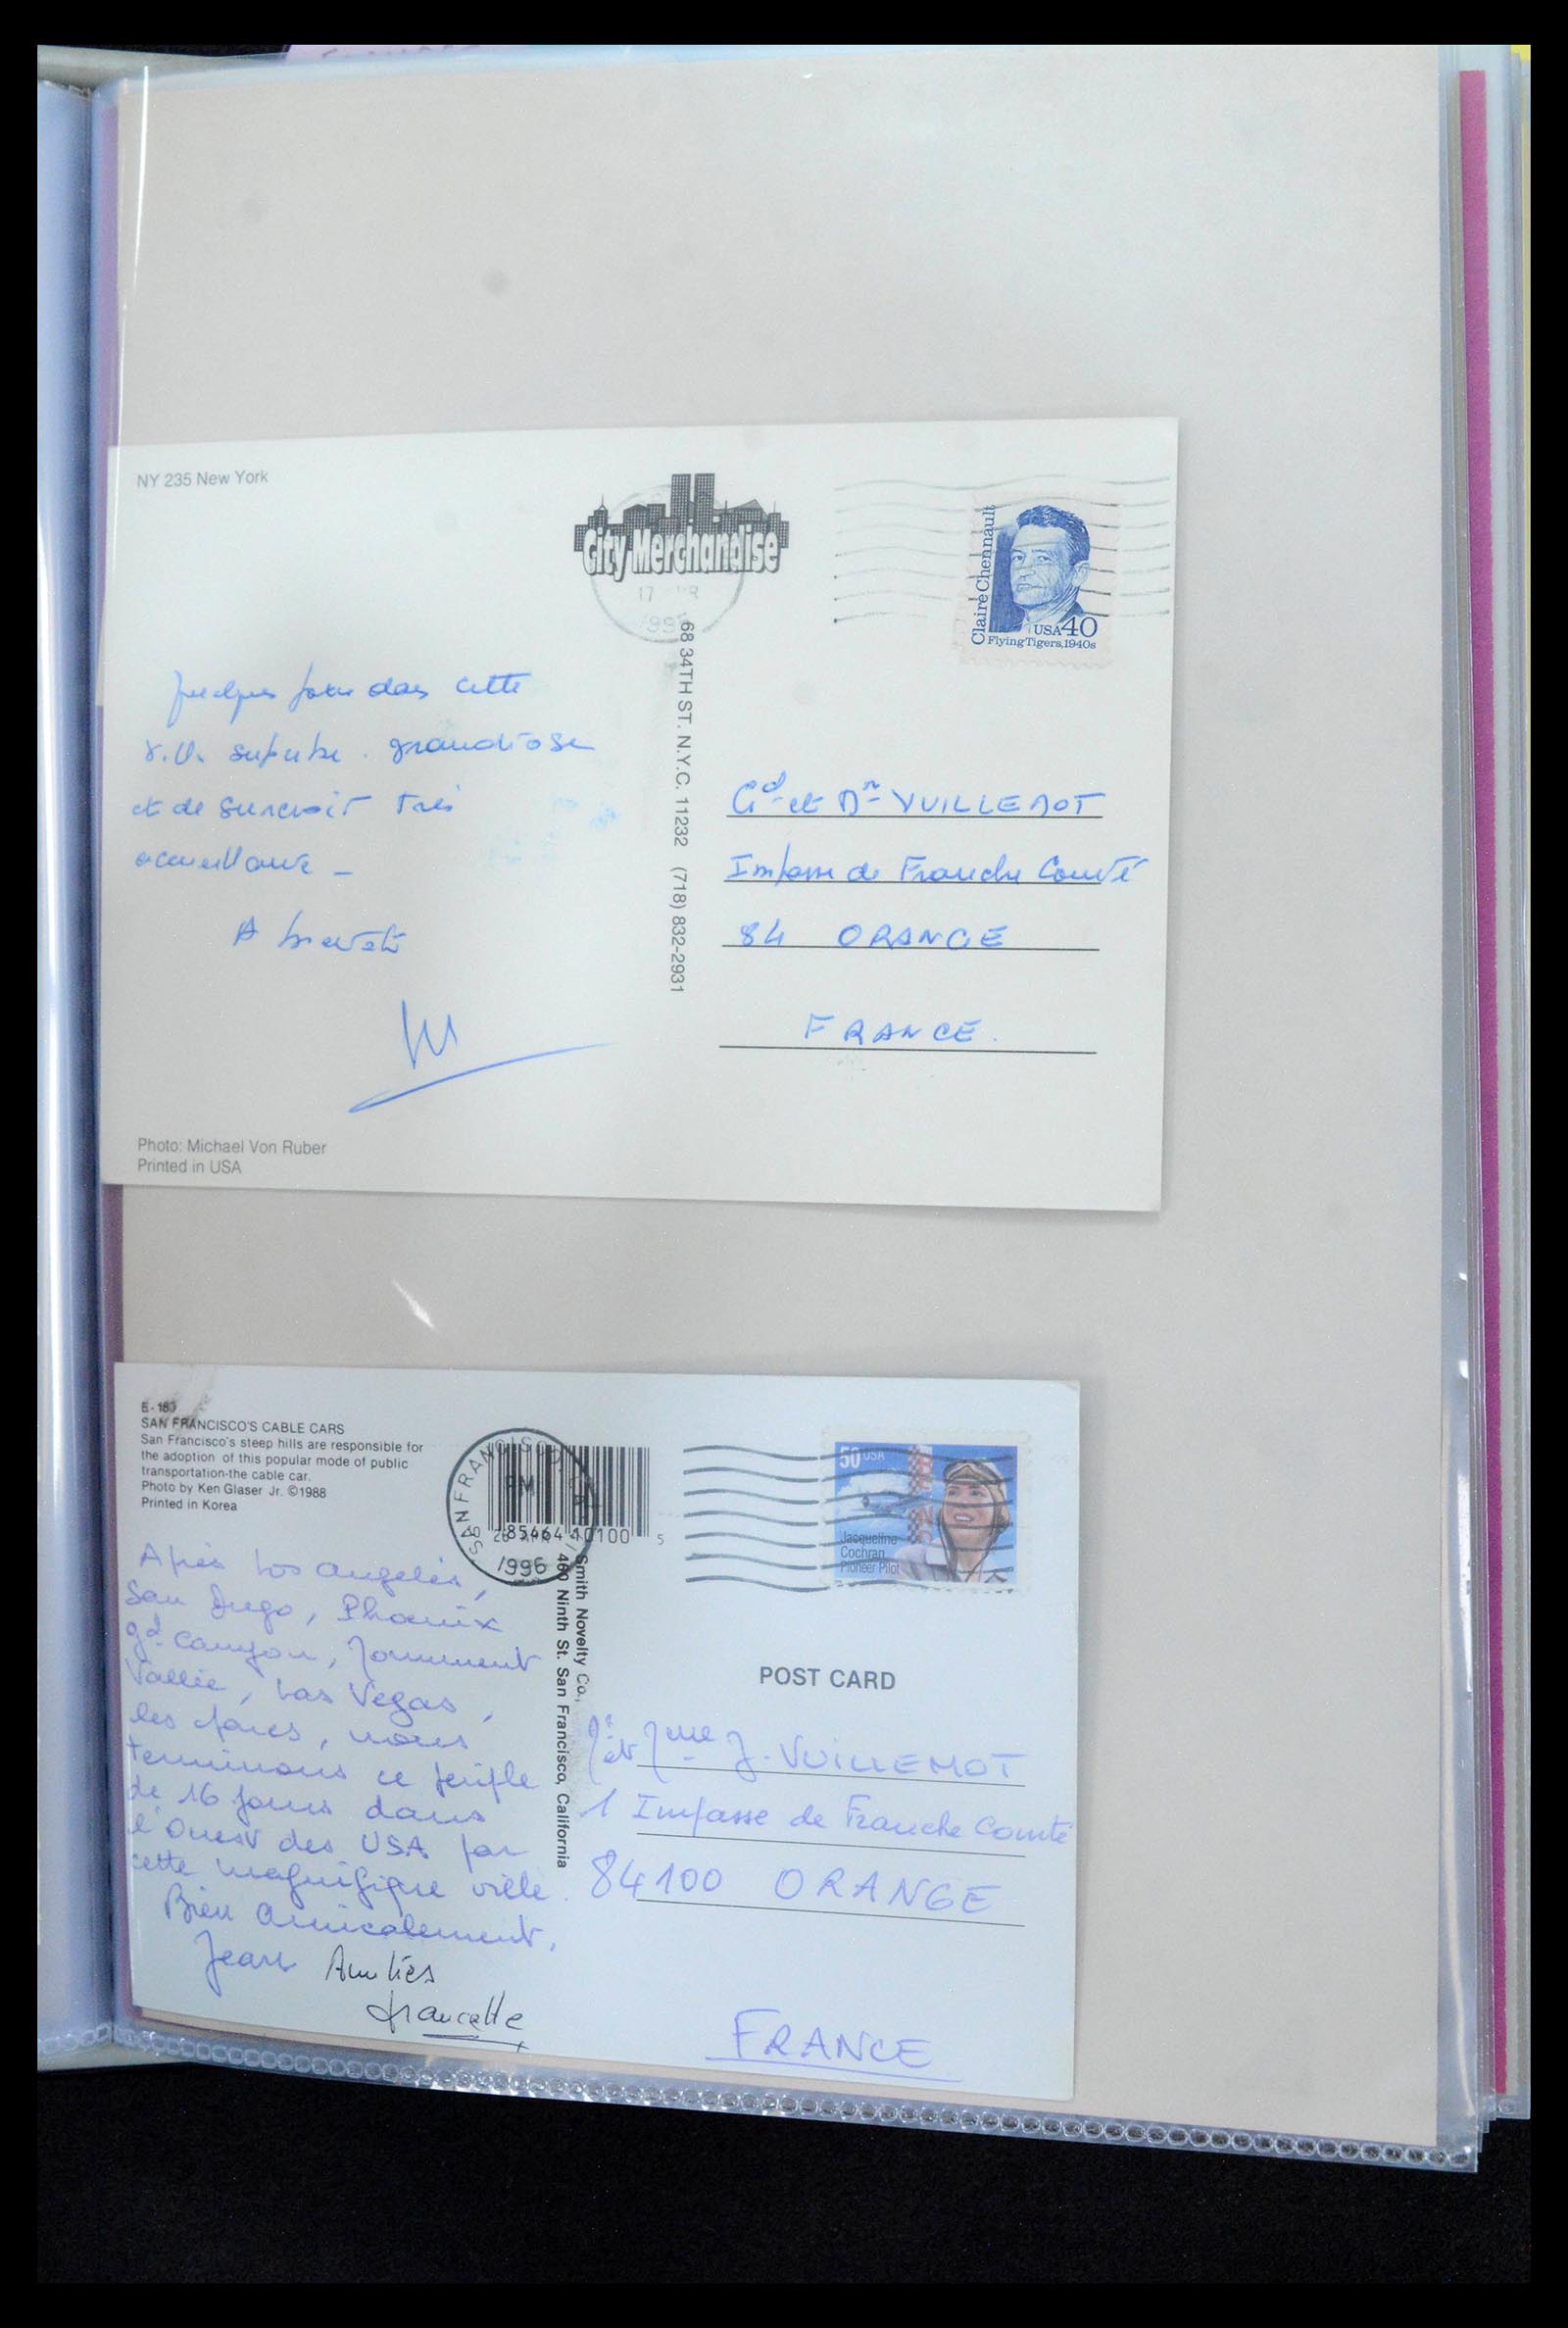 NY 235 New York
City Merchandise
17
Claire Chennault
USA 40
Flying Tigers, 1940s
68 34TH ST. N.Y.C. 11232 (718) 832-2931
Quelques jours dans cette
superbe. grandiose
et de surcroit très
accueillante -
A bientôt
Gd et Me VUILLEMOT
Impasse de Franche Comté
84 ORANGE
FRANCE.
Photo: Michael Von Ruber
Printed in USA
E-183
SAN FRANCISCO'S CABLE CARS
San Francisco's steep hills are responsible for
the adoption of this popular mode of public
transportation-the cable car.
Photo by Ken Glaser Jr. ©1988
Printed in Korea
SAN FRANCISCO, CA
PM
1996
85464 10100 5
50 USA
Jacqueline
Cochran
Pioneer Pilot
Smith Novelty Co.,
460 Ninth St. San Francisco, California
POST CARD
Après Los Angeles,
San Diego, Phoenix
gd Canyon, Monument
Vallée, Las Vegas,
les parcs, nous
terminons ce périple
de 16 jours dans
l'Ouest des USA par
cette magnifique ville.
Bien amicalement,
Jean Amitiés
Francette
Mr et Mme J. VUILLEMOT
1 Impasse de Franche Comté
84100 ORANGE
FRANCE